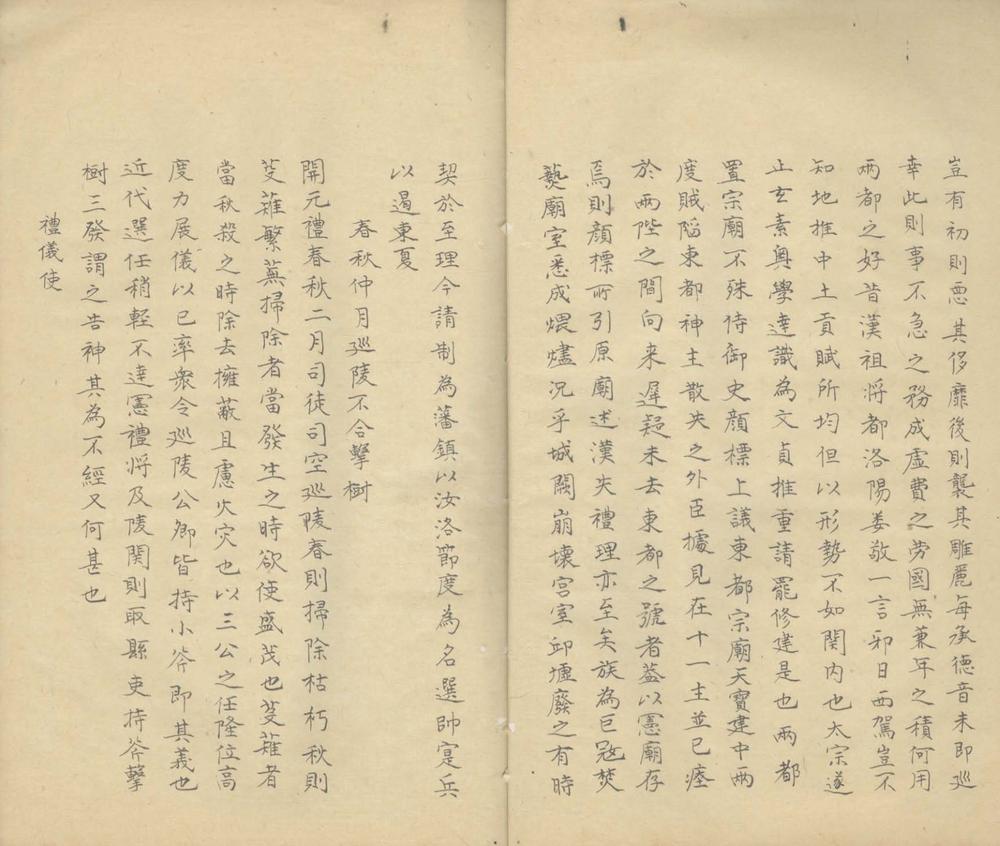 豈有初則惡其侈靡後則襲其雕麗每承德音未即巡
幸此則事不急之務成虛費之勞國無兼年之積何用
兩都之好昔漢祖將都洛陽婁敬一言邪日西駕豈不
知地推中土貢賦所均但以形勢不如関内也太宗遂
止玄素奥學達識為文貞推重請罷修建是也兩都
置宗廟不殊侍御史顏標上議東都宗廟天寶建中兩
度賊陷東都神主散失之外臣據見在十一主並已瘞
於兩陛之間向来遲疑未去東都之號者蓋以憲廟存
焉則顏標所引原廟述漢失禮理亦至矣族為巨寇焚
爇廟室悉成煨燼況乎城闕崩壊宫室邱墟廢之有時
契於至理今請制為藩鎮以汝洛節度為名選帥寔兵
以遏東夏
春秋仲月巡陵不合擊樹
開元禮春秋二月司徒司空巡陵春則掃除枯朽秋則
芟薙繁蕪掃除者當發生之時欲使盛茂也芟薙者
當秋殺之時除去擁蔽且慮火灾也以三公之任隆位高
度力展儀以已率衆令巡陵公卿皆持小斧即其義也
近代選任稍輕不達憲禮將及陵関則取縣吏持斧擊
樹三發謂之告神其為不經又何甚也
禮儀使